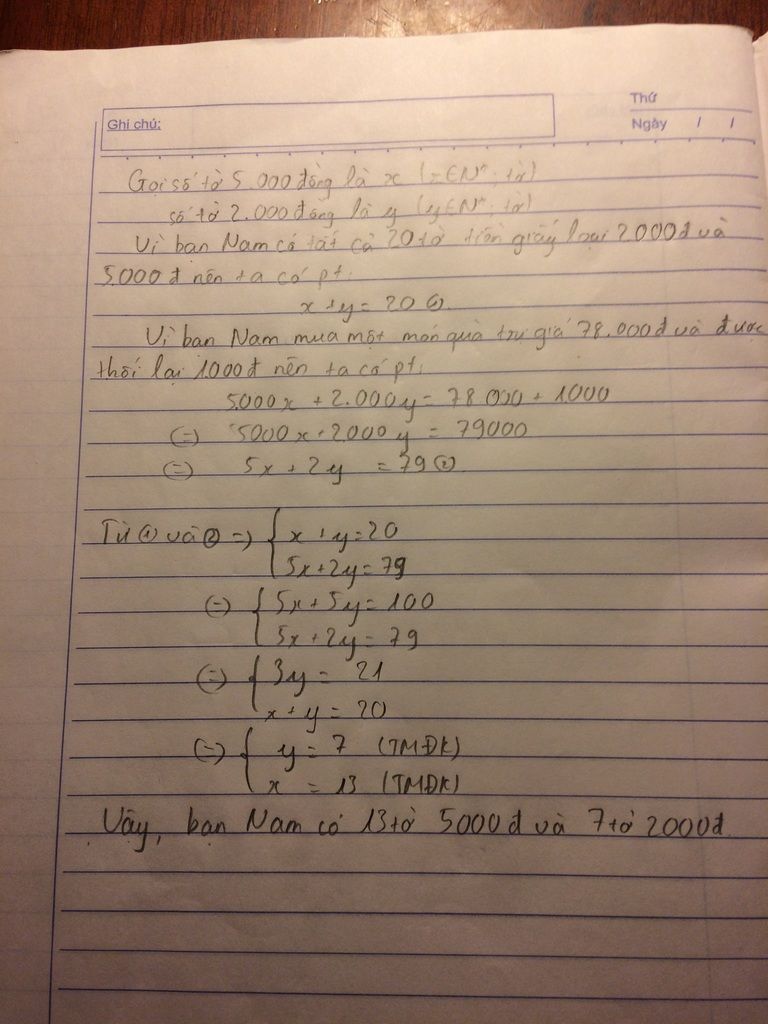 Thứ
Ghi chú:
Ngày / /
Gọi số tờ 5.000 đồng là x (x∈N*; tờ)
số tờ 2.000 đồng là y (y∈N*; tờ)
Vì bạn Nam có tất cả 20 tờ tiền giấy loại 2000đ và
5.000 đ nên ta có pt:
x + y = 20 ①
Vì bạn Nam mua một món quà trị giá 78.000đ và được
thối lại 1000đ nên ta có pt:
5000x + 2.000y = 78 000 + 1000
(=) 5000x + 2000y = 79000
(=) 5x + 2y = 79 ②
Từ ① và ② =) { x + y = 20
5x + 2y = 79
(=) { 5x + 5y = 100
5x + 2y = 79
(=) { 3y = 21
x + y = 20
(=) { y = 7 (TMĐK)
x = 13 (TMĐK)
Vậy, bạn Nam có 13 tờ 5000đ và 7 tờ 2000đ